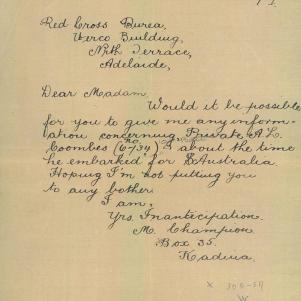 Red Cross Burea,
Verco Building,
Nrth Terrace,
Adelaide,
Dear Madam,
Would it be possible
for you to give me any inform-
ation concerning Private A.L.
Coombes (6734) about the time
he embarked for S Australia
Hoping I'm not putting you
to any bother
I am,
Yrs. Inantecipation.
M. Champion
Box 35.
Kadina.